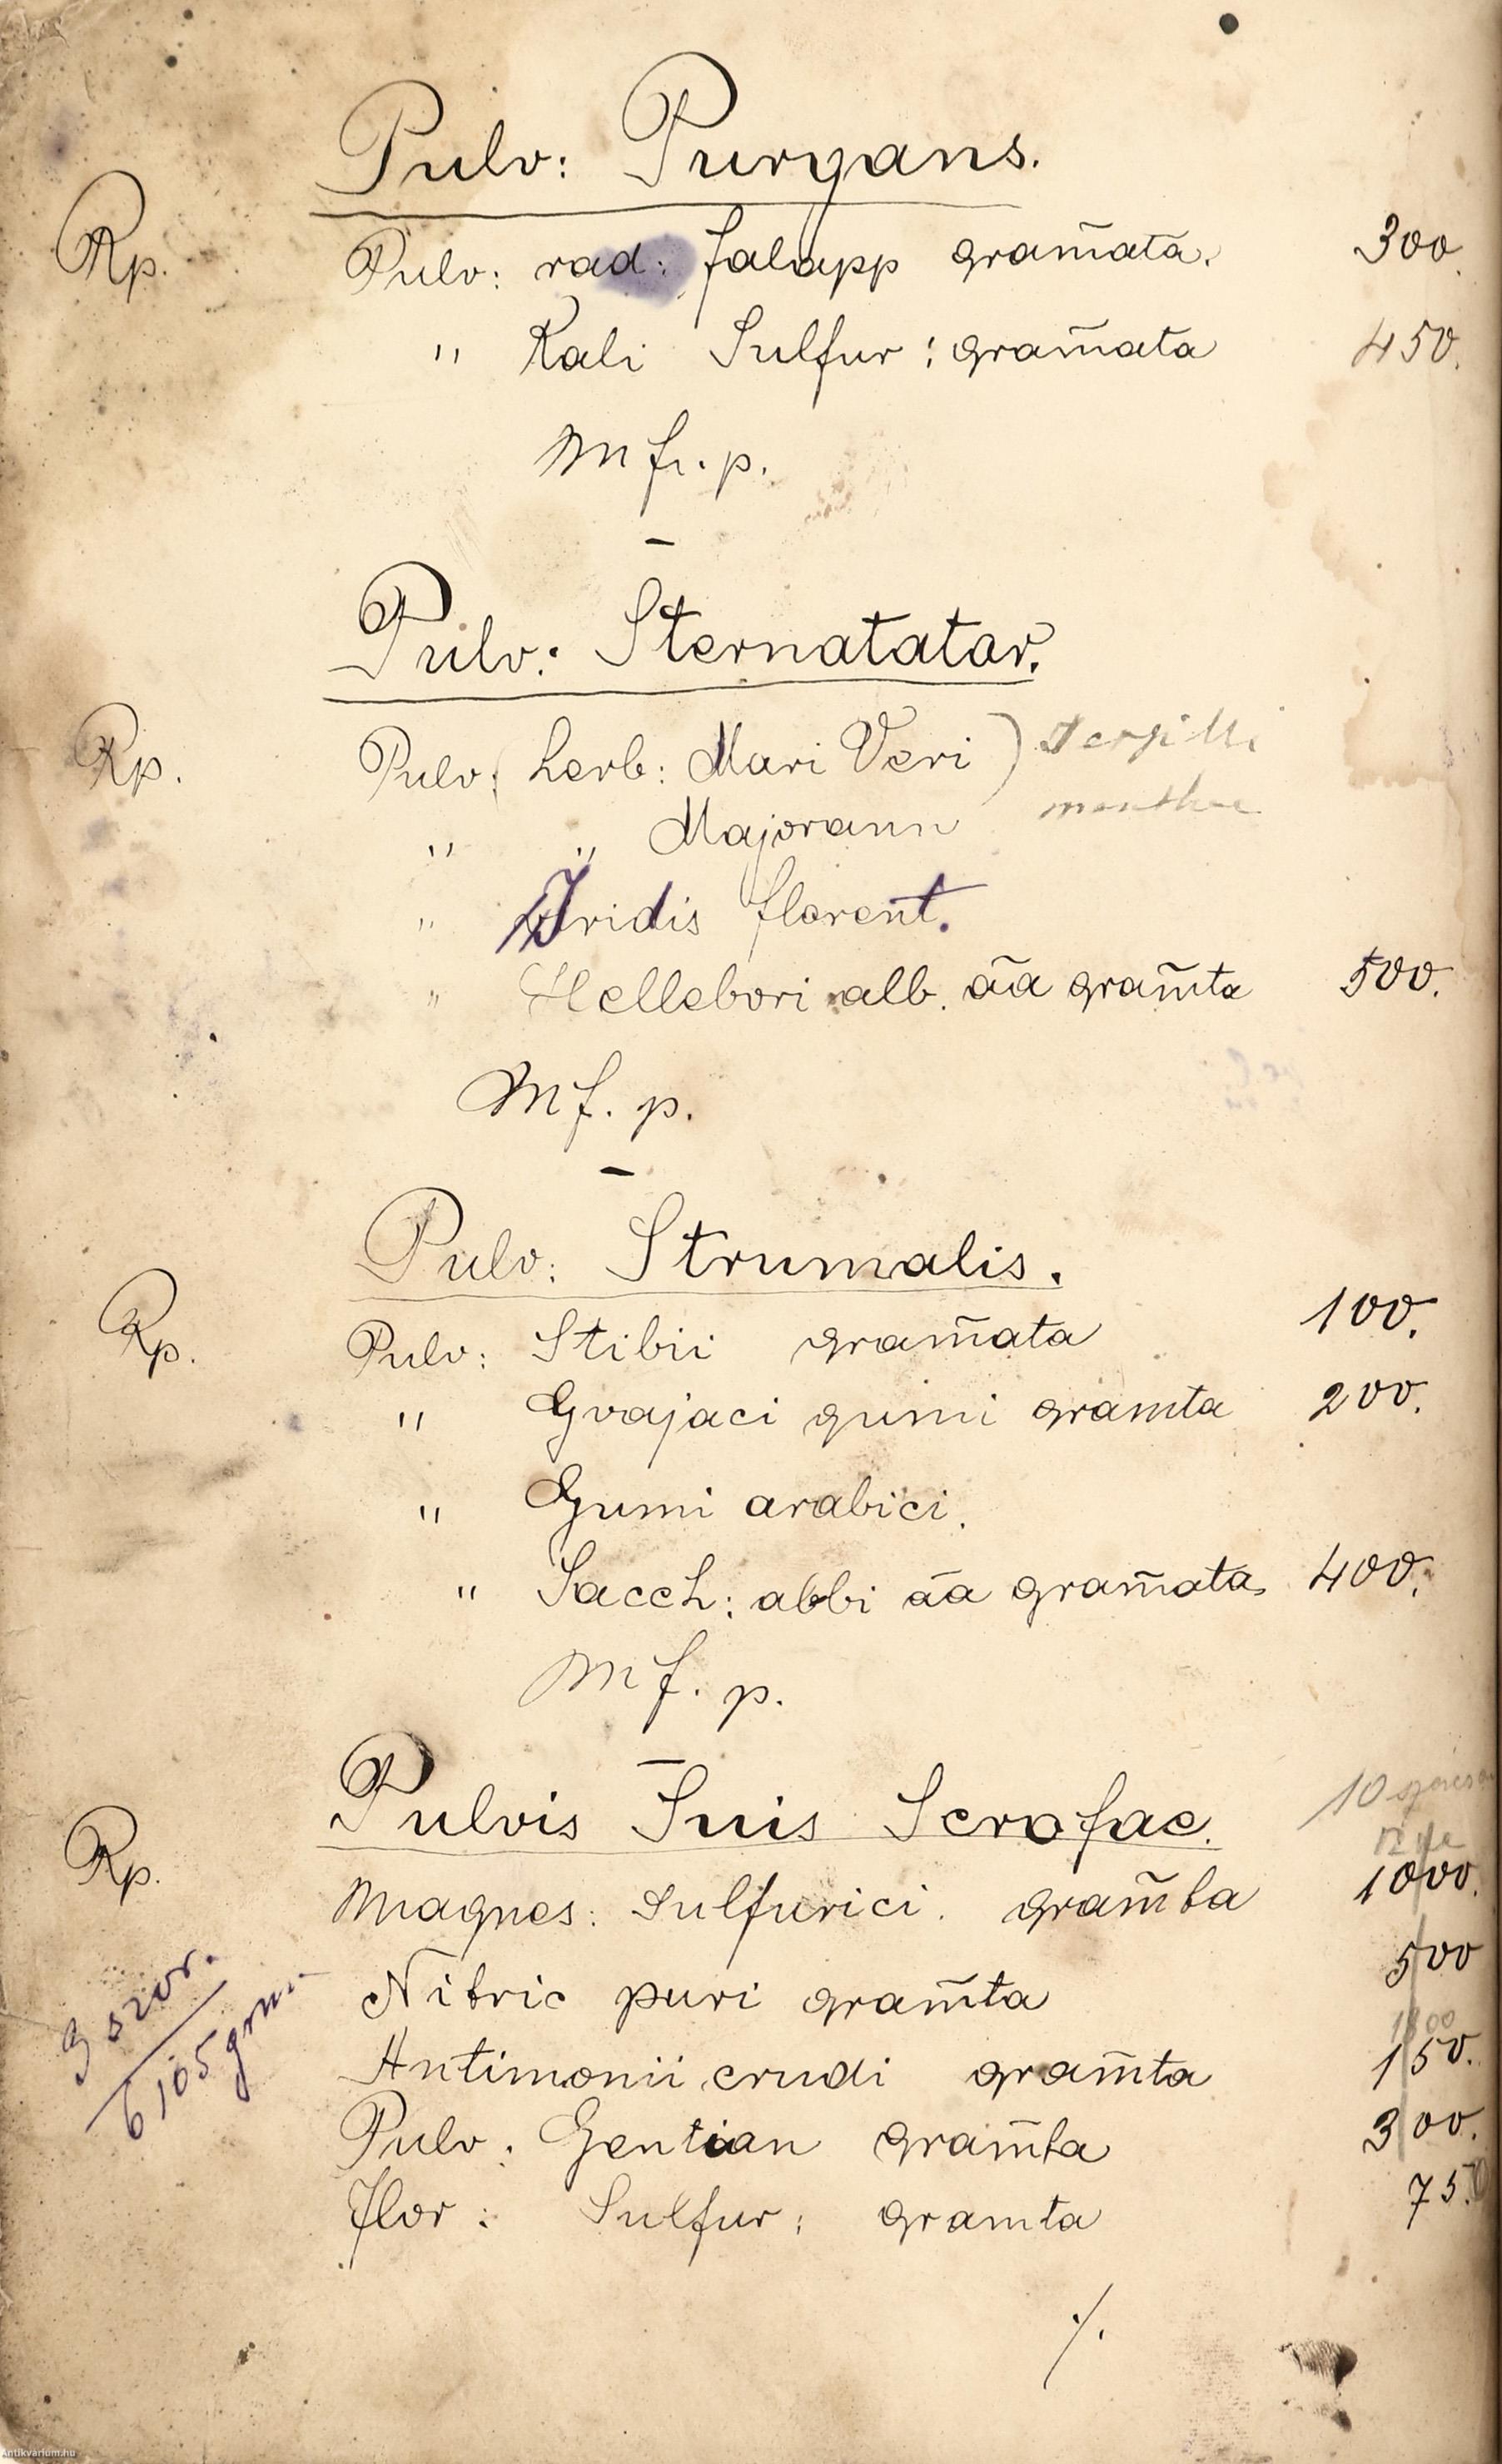 Pulv: Purgans.
Rp. Pulv: rad: Jalapp gram̄ata. 300.
" Kali Sulfur: gram̄ata 450.
M f. p.
Pulv: Sternatatar.
Rp. Pulv: (herb: Mari Veri) Serpilli
menthae
" " Majorann
" Iridis florent.
" Hellebori alb. āa gram̄ta 500.
M f. p.
Pulv: Strumalis.
Rp. Pulv: Stibii gram̄ata 100.
" Gvajaci gumi gramta 200.
" Gumi arabici.
" Sacch: albi āa gram̄ata 400.
M f. p.
Pulvis Suis Scrofae.
10
Rp. Magnes: Sulfurici. gram̄ta 1000.
Nitric puri gram̄ta 500
1800
Antimonii crudi gram̄ta 150.
Pulv: Gentian gram̄ta 300.
Flor: Sulfur: gramta 75.
9 szor.
6105 grm.
./.
Antikvarium.hu